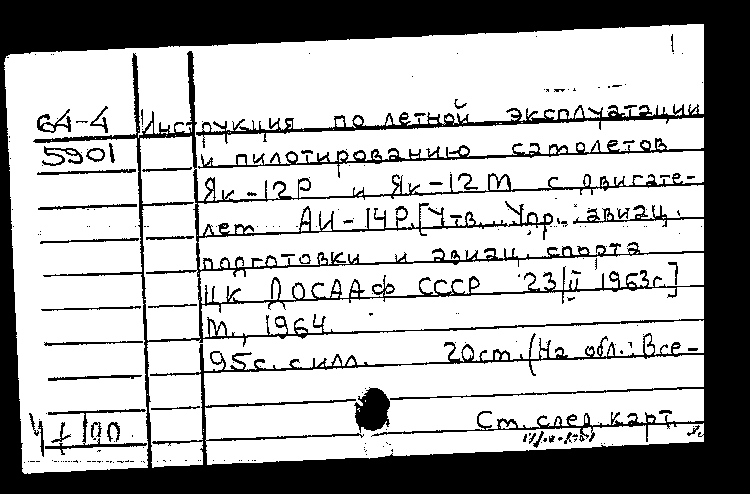 1
64-4 Инструкция по летной эксплуатации
5901 и пилотированию самолетов
Як-12Р и Як-12М с двигате-
лем АИ-14Р. [Утв. Упр. авиац.
подготовки и авиац. спорта
ЦК ДОСААФ СССР 23/II 1963г.]
М., 1964.
95с. с илл. 20см. (На обл.: Все-
Ст. след. карт.